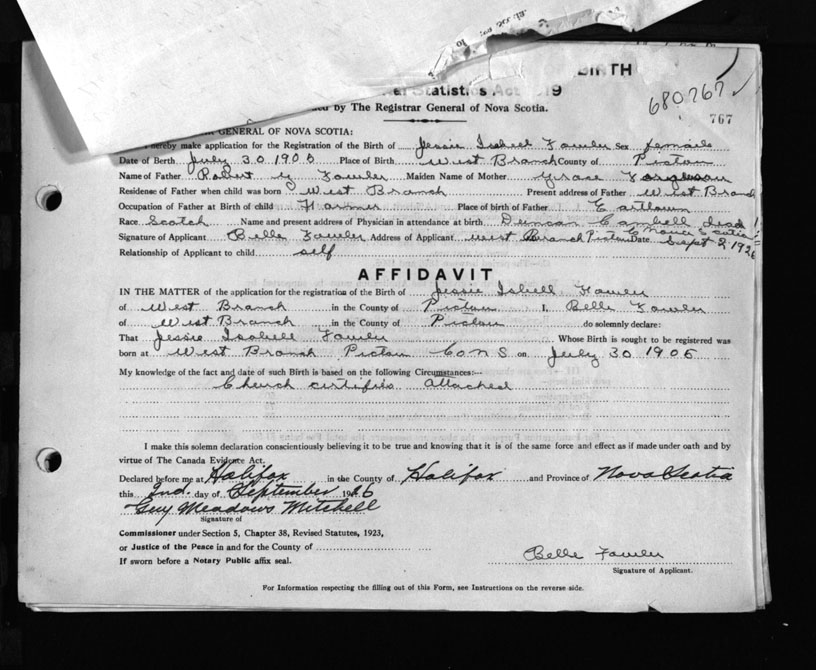 BIRTH
Statistics Act
by The Registrar General of Nova Scotia.
680767
767
GENERAL OF NOVA SCOTIA:
hereby make application for the Registration of the Birth of Jessie Isbell Fowler Sex female
Date of Birth July 30 190 Place of Birth West Branch County of Pictou
Name of Father Robert Fowler Maiden Name of Mother Grace Forgeson
Residence of Father when child was born West Branch Present address of Father West Branch
Occupation of Father at Birth of child Farmer Place of birth of Father Earltown
Race Scotch Name and present address of Physician in attendance at birth Duncan Cambell dead
Signature of Applicant Belle Fowler Address of Applicant West Branch Pictou Co Nova Scotia Date Sept 2 1926
Relationship of Applicant to child self
AFFIDAVIT
IN THE MATTER of the application for the registration of the Birth of Jessie Isbell Fowler
of West Branch in the County of Pictou I, Belle Fowler
of West Branch in the County of Pictou do solemnly declare:
That Jessie Isabell Fowler Whose Birth is sought to be registered was
born at West Branch Pictou Co N S on July 30 190
My knowledge of the fact and date of such Birth is based on the following Circumstances:—
Church certifis attached
I make this solemn declaration conscientiously believing it to be true and knowing that it is of the same force and effect as if made under oath and by
virtue of The Canada Evidence Act.
Declared before me at Halifax in the County of Halifax and Province of Nova Scotia
this 2nd. day of September 1926
Guy Meadows Mitchell
Signature of
Commissioner under Section 5, Chapter 38, Revised Statutes, 1923,
or Justice of the Peace in and for the County of
If sworn before a Notary Public affix seal.
Belle Fowler
Signature of Applicant.
For Information respecting the filling out of this Form, see Instructions on the reverse side.